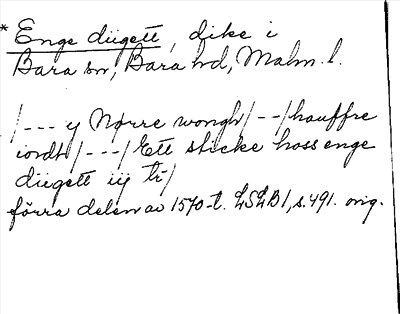 * Enge diigett, dike i
Bara sn, Bara hd, Malm. l.
/--- y Nørre wongh/--/hauffre
iordh/---/Ett sticke hoss enge
diigett iij tr/
förra delen av 1570-t. LSLB1, s. 491. orig.